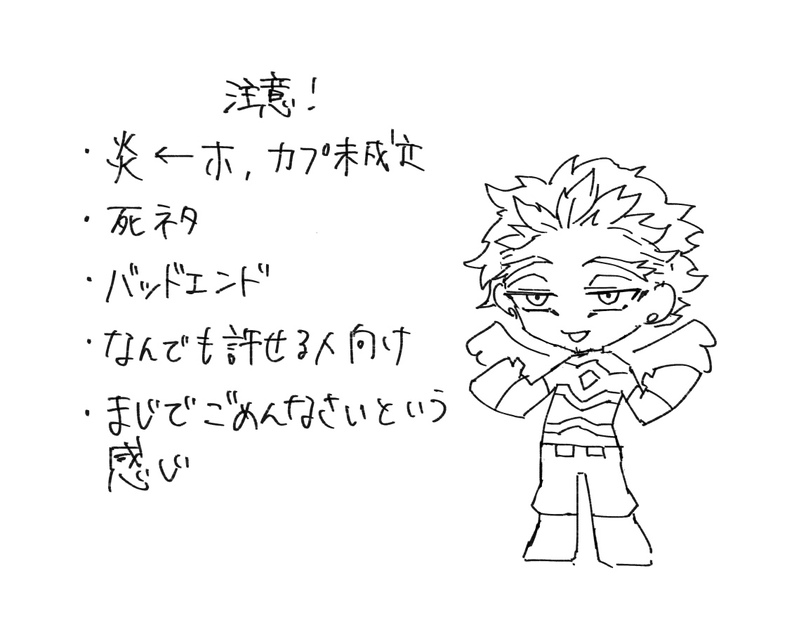 注意！
・炎←ホ，カプ未成立
・死ネタ
・バッドエンド
・なんでも許せる人向け
・まじでごめんなさいという
感じ